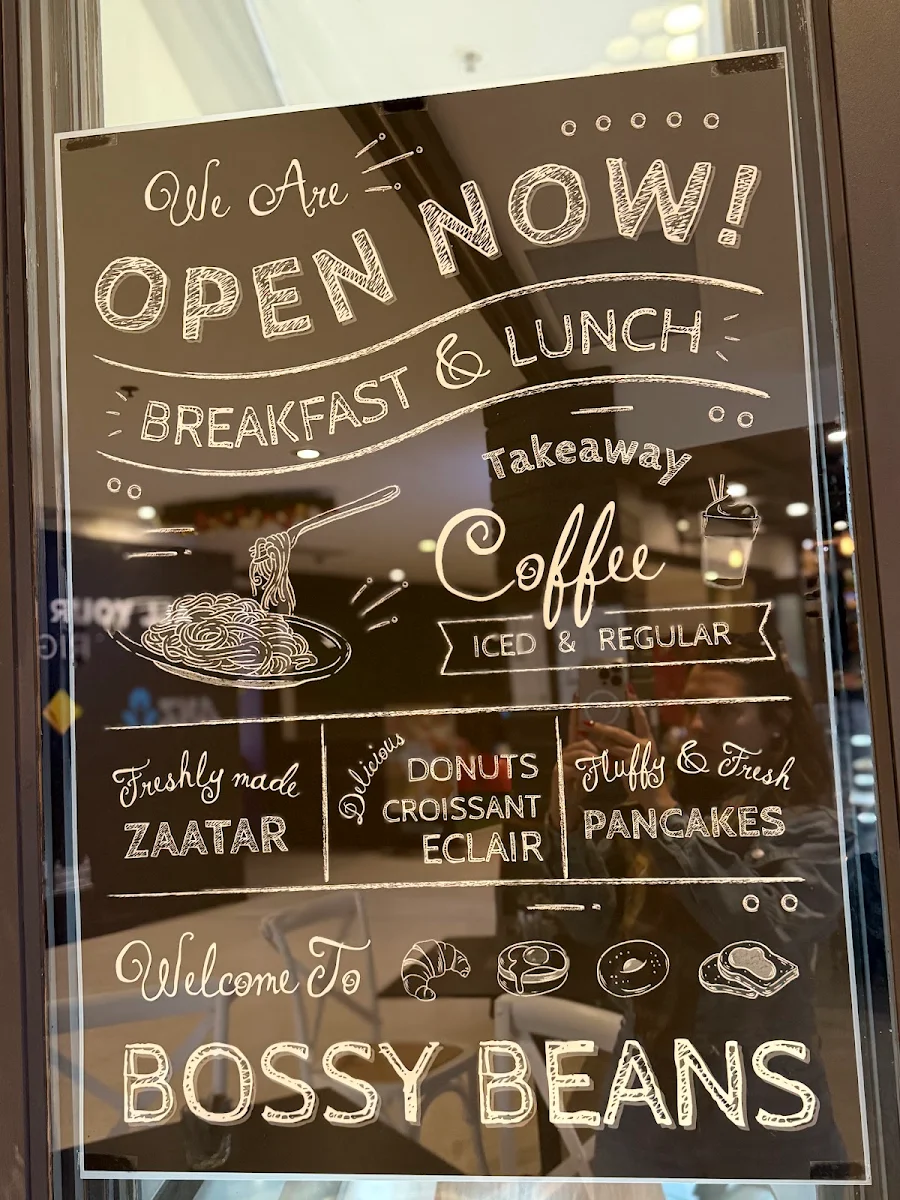 We Are
OPEN NOW!
BREAKFAST & LUNCH
Takeaway
Coffee
ICED & REGULAR
Freshly made
ZAATAR
Delicious
DONUTS
CROISSANT
ECLAIR
Fluffy & Fresh
PANCAKES
Welcome To
BOSSY BEANS